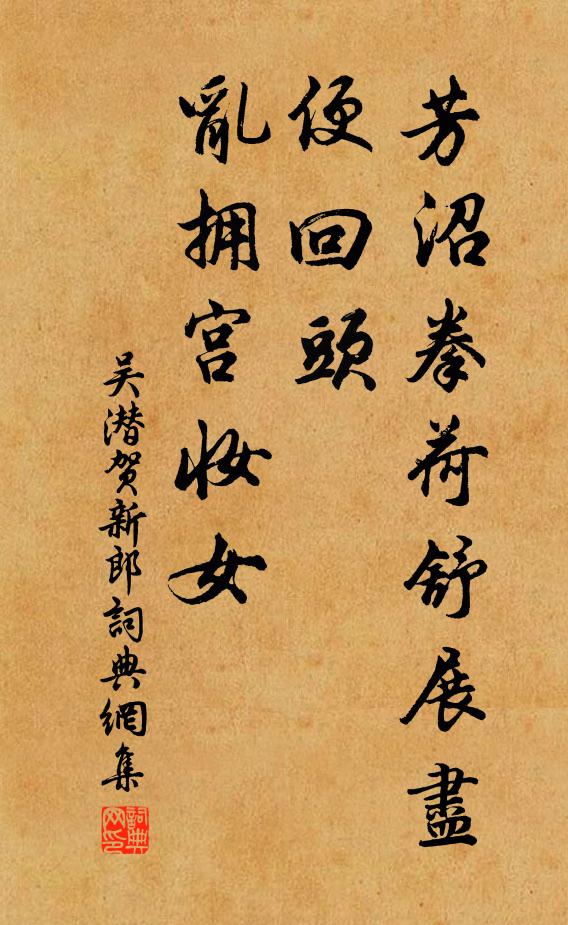 芳沼拳荷舒展盡
便回頭
亂拥宫妝女
吴潜贺新郎詞典網集
詞典网印